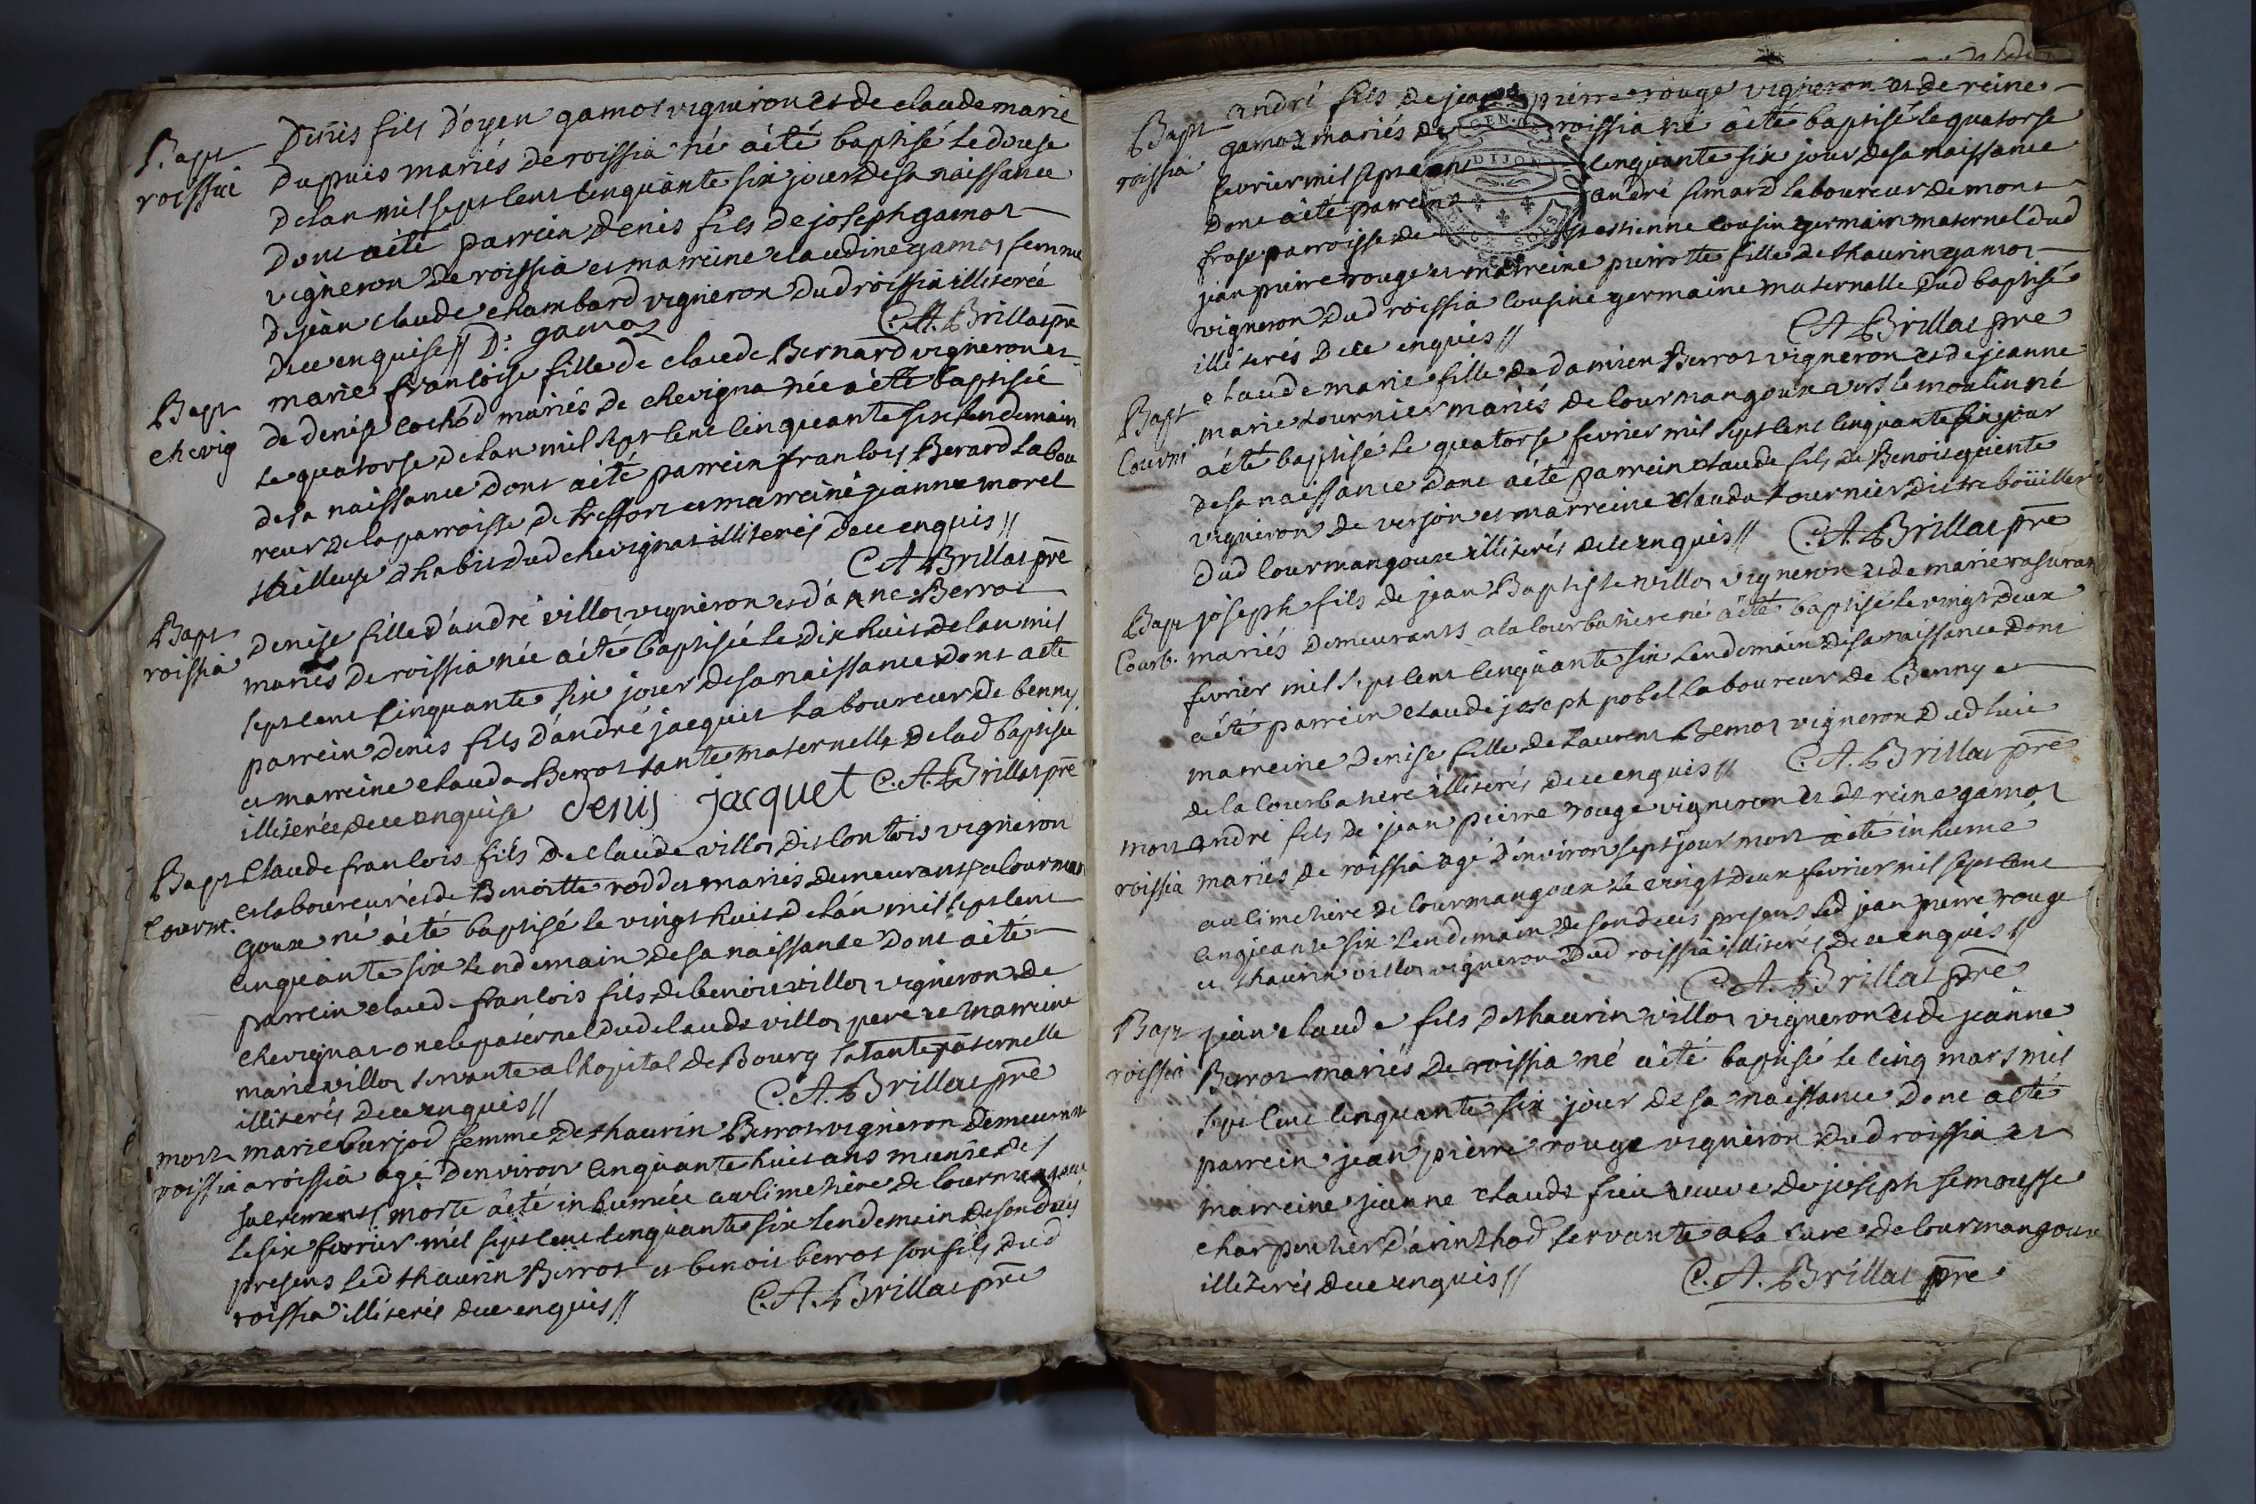 Bapt
roissia
Denis fils d'oyen gamot vigneron et de claude marie
dupuis mariés de roissia né a été baptisé le douse
de lan mil sept cent cinquante six jour de sa naissance
dont a été parrein denis fils de joseph gamot
vigneron de roissia et marreine claudine gamot femme
de jean claude chambard vigneron dud roissia illiterée
de ce enquise // D: gamot C. A. Brillat pre
Bapt
chevig
marie francoise fille de claude Bernard vigneron et
de denise cochod mariés de chevigna née a été baptisée
le quatorse de lan mil sept cent cinquante six lendemain
de sa naissance dont a été parrein francois Berard labou
reur de la parroisse de treffort et marreine jeanne morel
tailleuse d'habit dud chevignat illiterés de ce enquis //
C A Brillat pre
Bapt
roissia
denise fille d'andré villot vigneron et d'anne Berrot
mariés de roissia née a été baptisée le dix huit de lan mil
sept cent cinquante six jour de sa naissance dont a été
parrein denis fils d'andré jacquet laboureur de benny
et marreine clauda Berrot tante maternelle de lad baptisée
illiterée de ce enquise denis jacquet C. A. Brillat pre
Bapt
Courm.
Claude francois fils de claude villot dit contois vigneron
et laboureur et de Benoitte roddet mariés demeurants a courman
goux né a été baptisé le vingt huit de lan mil sept cent
cinquante six lendemain de sa naissance dont a été
parrein claude francois fils de benoit villot vigneron de
chevignat oncle paternel dud claude villot pere et marreine
marie villot servante a lhopital de Bourg sa tante paternelle
illiterés de ce enquis // C. A. Brillat pre
mort
roissia
marie burjod femme de thaurin Berrot vigneron demeurant
a roissia agé d'environ cinquante huit ans munie des
sacrements morte a été inhumée au cimetiere de courmangoux
le six fevrier mil sept cent cinquante six lendemain de son decés
presens led thaurin Berrot et benoit berrot son fils dud
roissia illiterés de ce enquis // C. A. Brillat pre
Bapt
roissia
andré fils de jean pierre rouge vigneron et de reine
gamot mariés de roissia né a été baptisé le quatorse
fevrier mil sept cent cinquante six jour de sa naissance
dont a été parrein andré simard laboureur de mont
frase parroisse de st estienne cousin germain maternel dud
jean pierre rouge et marreine pierrotte fille de thaurin gamot
vigneron dud roissia cousine germaine maternelle dud baptisé
illiterés de ce enquis // C A Brillat pre
Bapt
Courm
claude marie fille de damien Berrot vigneron et de jeanne
marie tournier mariés de courmangoux vers le moulin né
a été baptisé le quatorse fevrier mil sept cent cinquante six jour
de sa naissance dont a été parrein claude fils de Benoit quiente
vigneron de verjon et marreine clauda tournier
dud courmangoux illiterés de ce enquis // C. A. Brillat pre
Bapt
Courb.
joseph fils de jean Baptiste villot vigneron et de marie rasurat
mariés demeurants a la courbatiere né a été baptisé le vingt deux
fevrier mil sept cent cinquante six lendemain de sa naissance dont
a été parrein claude joseph pobel laboureur de Benny et
marreine denise fille de laurent Bernot vigneron dud lieu
de la courbatiere illiterés de ce enquis // C. A. Brillat pre
mort
roissia
andré fils de jean pierre rouge vigneron et de reine gamot
mariés de roissia agé d'environ sept jour mort a été inhumé
au cimetiere de courmangoux le vingt deux fevrier mil sept cent
cinquante six lendemain de son decés presens led jean pierre rouge
et thaurin villot vigneron dud roissia illiterés de ce enquis //
C. A. Brillat pre
Bapt
roissia
jean claude fils de thaurin villot vigneron et de jeanne
Berrot mariés de roissia né a été baptisé le cinq mars mil
sept cent cinquante six jour de sa naissance dont a été
parrein jean pierre rouge vigneron dud roissia et
marreine jeanne claude veuve de joseph semousse
charpentier d'arinthod servante a la cure de courmangoux
illiterés de ce enquis // C. A. Brillat pre
DIJON